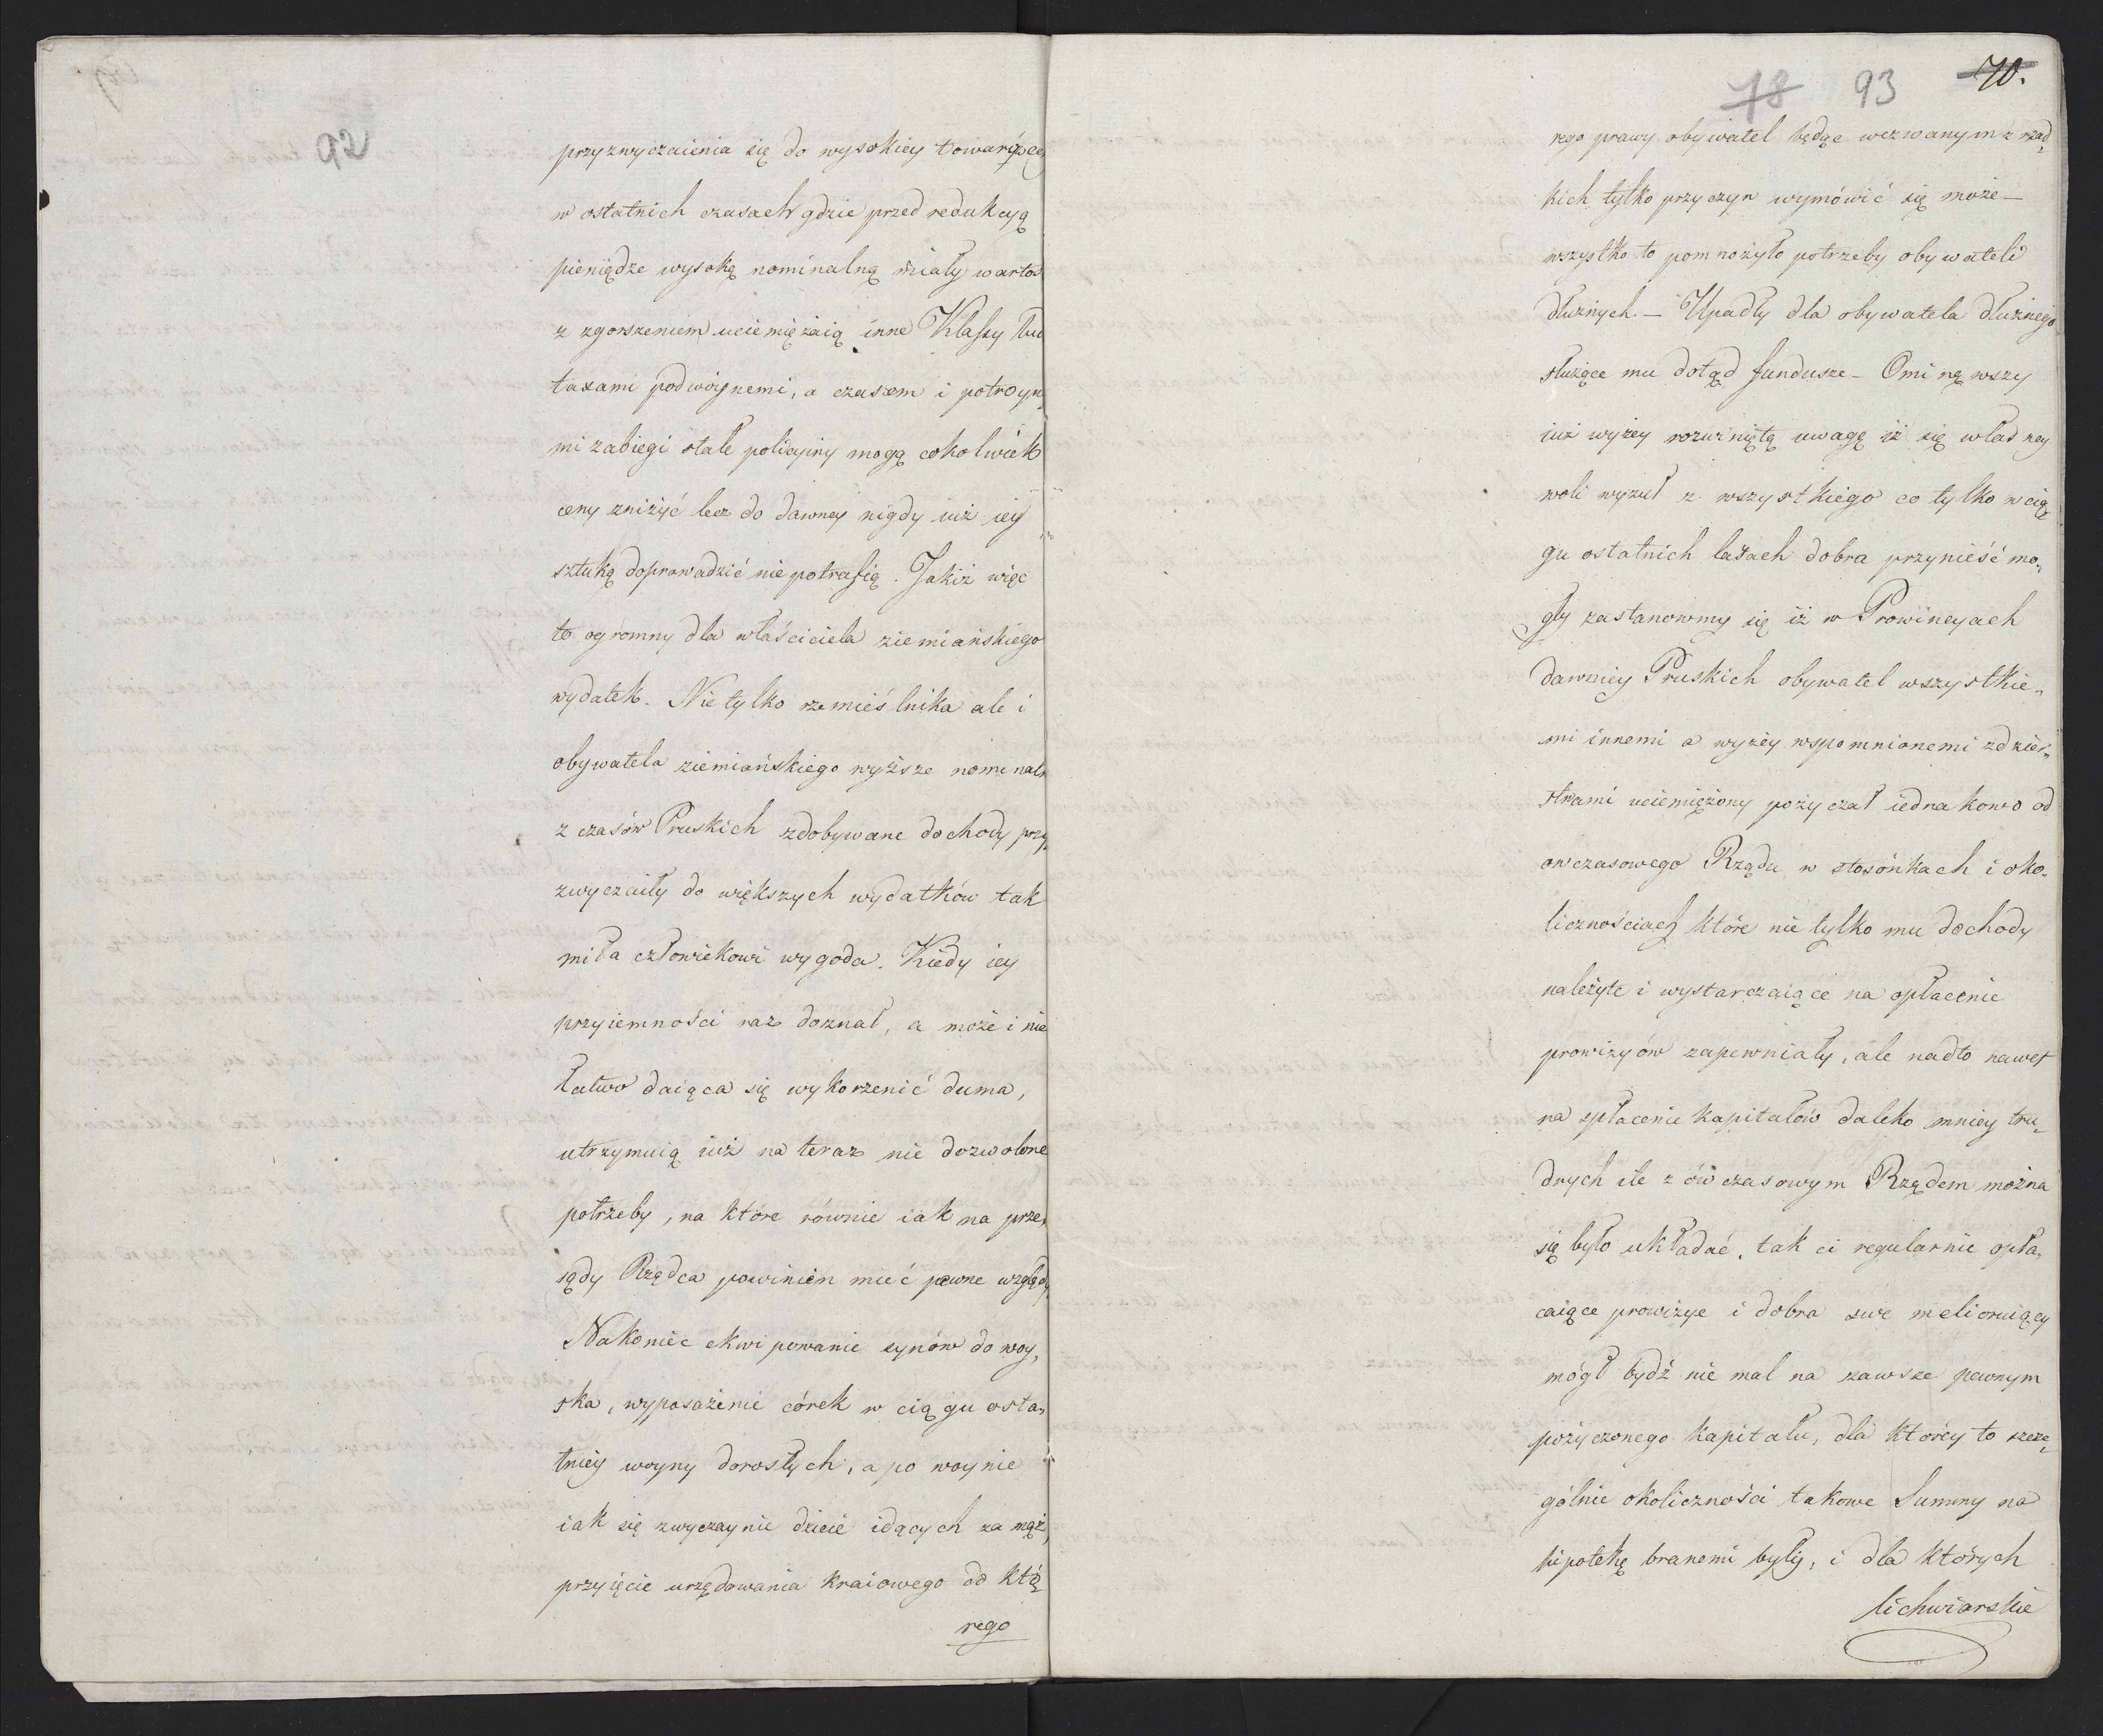 92
przyzwyczaienia się do wysokiey towarów cen
w ostatnich czasach gdzie przed redukcyą
pieniądze wysoką nominalną miały wartoś
z zgorszeniem uciemiężaią inne Klassy lu
taxami podwóynemi, a czasem i potroyn„
mi zabiegi stałe policyiny mogą cokolwiek
ceny zniżyć lecz do dawney nigdy iuż iey
sztuką doprowadzić nie potrafią. Jakiż więc
to ogromny dla właściciela ziemiańskiego
wydatek. Nie tylko rzemieślnika ale i
obywatela ziemiańskiego wyższe nominaln
z czasów Pruskich zdobywane dochody przy„
zwyczaiły do większych wydatków tak
miła człowiekowi wygoda. Kiedy iey
przyiemności raz doznał, a może i nie
łatwo daiąca się wykorzenić duma,
utrzymuią iuż na teraz nie dozwolone
potrzeby, na które równie iak na prze„
sądy Rządca powinien mieć pewne względy
Nakoniec ekwipowanie synów do woy„
ska, wyposażenie córek w ciągu osta„
tniey woyny dorosłych, a po woynie
iak się zwyczaynie dzieie idących za mąż,
przyięcie urzędowania kraiowego od któ„
rego
78 93 70.
rego prawy obywatel będąc wezwanym z rzad„
kich tylko przyczyn wymówić się może —
wszystko to pomnożyło potrzeby obywateli
dłużnych — Upadły dla obywatela dłużnego
służące mu dotąd fundusze — Ominąwszy
iuż wyżey rozwiniętą uwagę iż się własney
woli wyzuł z wszystkiego co tylko w cią„
gu ostatnich latach dobra przynieść mo„
gły zastanowmy się iż w Prowincyach
dawniey Pruskich obywatel wszystkie„
mi innemi a wyżey wspomnionemi zdzier„
stwami uciemiężony pożyczał iednakowo od
owczasowego Rządu w stosónkach i oko„
licznościach które nie tylko mu dochody
należyte i wystarczaiące na opłacenie
prowizyów zapewniały, ale nadto nawet
na spłacenie kapitałów daleko mniey tru„
dnych ile z ówczasowym Rządem można
się było układać, tak ci regularnie opła„
caiące prowizye i dobra swe melioruiący
mógł bydź nie mal na zawsze pewnym
pożyczonego kapitału, dla którey to szcze„
gólnie okoliczności takowe Summy na
hipotekę branemi były, i dla których
lichwiarskie